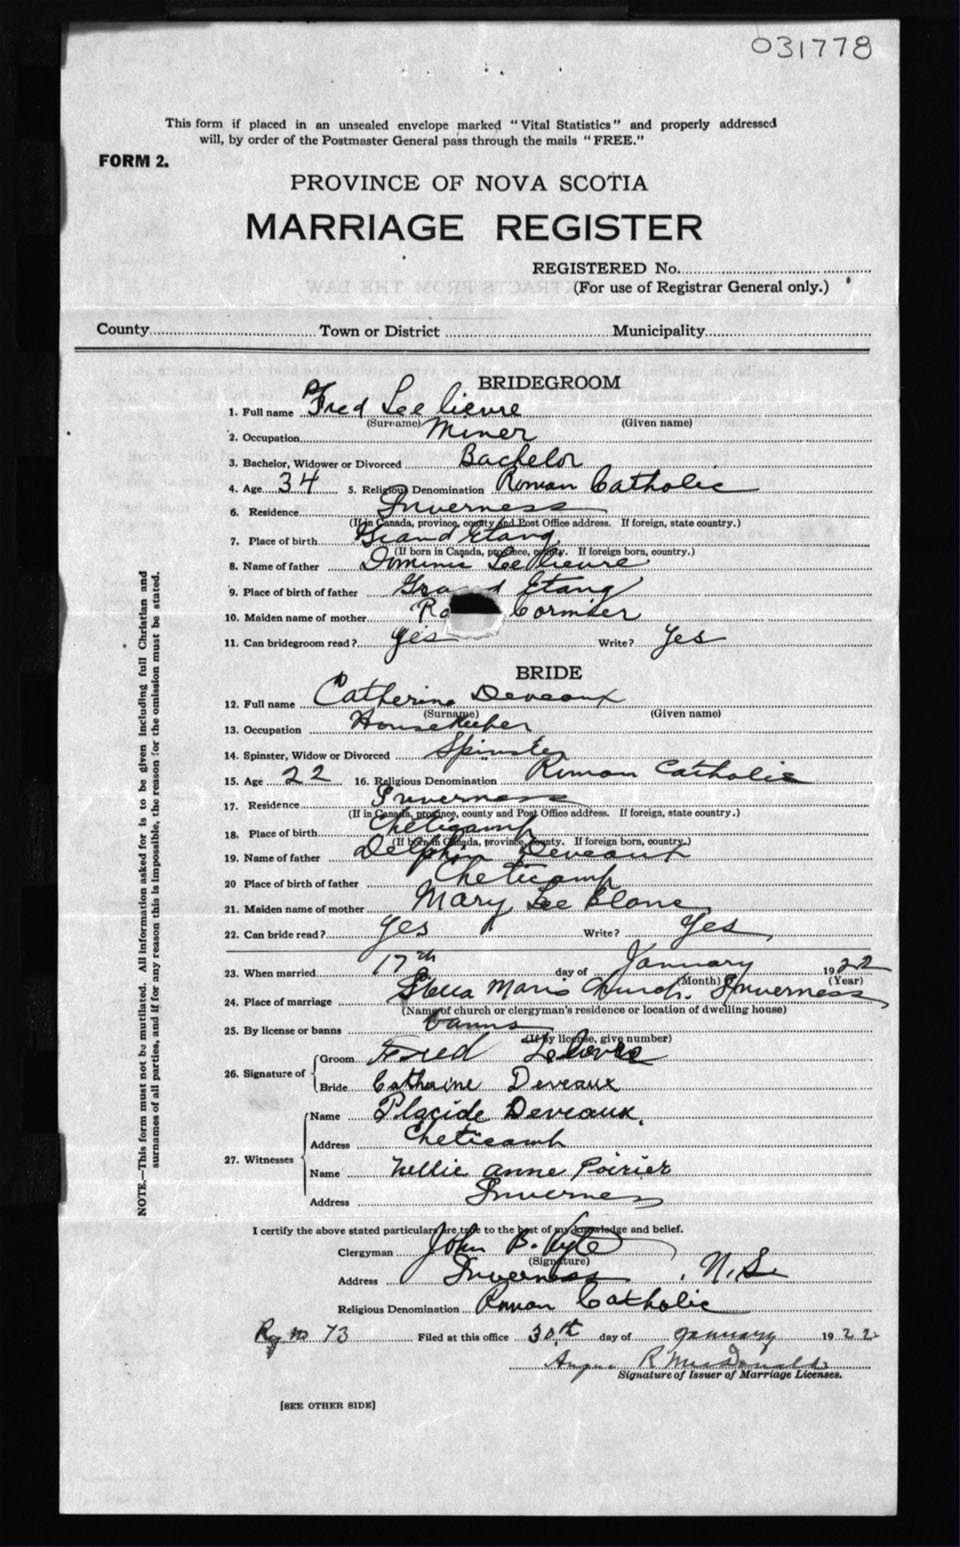 031778
This form if placed in an unsealed envelope marked "Vital Statistics" and properly addressed
will, by order of the Postmaster General pass through the mails "FREE."
FORM 2.
PROVINCE OF NOVA SCOTIA
MARRIAGE REGISTER
REGISTERED No.
(For use of Registrar General only.)
County Town or District Municipality
BRIDEGROOM
1. Full name Fred Lee lievre
(Surname) (Given name)
2. Occupation Miner
3. Bachelor, Widower or Divorced Bachelor
4. Age 34 5. Religious Denomination Roman Catholic
6. Residence Inverness
(If in Canada, province, county and Post Office address. If foreign, state country.)
7. Place of birth Grand Etang
(If born in Canada, province, county. If foreign born, country.)
8. Name of father Dominic Lee lievre
9. Place of birth of father Grand Etang
10. Maiden name of mother Ro Cormier
11. Can bridegroom read? yes Write? Yes
BRIDE
12. Full name Catherine Deveaux
(Surname) (Given name)
13. Occupation Housekeeper
14. Spinster, Widow or Divorced Spinster
15. Age 22 16. Religious Denomination Roman Catholic
17. Residence Inverness
(If in Canada, province, county and Post Office address. If foreign, state country.)
18. Place of birth Cheticamp
(If born in Canada, province, county. If foreign born, country.)
19. Name of father Delphin Deveaux
20 Place of birth of father Cheticamp
21. Maiden name of mother Mary Lee Blanc
22. Can bride read? yes Write? yes
23. When married 17th day of January 1922
(Month) (Year)
24. Place of marriage Stella Maris Church. Inverness
(Name of church or clergyman's residence or location of dwelling house)
25. By license or banns banns
(If by license, give number)
26. Signature of Groom Fred
Bride Catherine Deveaux
27. Witnesses Name Placide Deveaux,
Address Cheticamp
Name Nellie Anne Poirier
Address Inverness
I certify the above stated particulars are true to the best of my knowledge and belief.
Clergyman John B. Kyte
(Signature)
Address Inverness, N.S.
Religious Denomination Roman Catholic
Reg no 73 Filed at this office 30th day of January 1922
Angus R MacDonald
Signature of Issuer of Marriage Licenses.
[SEE OTHER SIDE]
NOTE.—This form must not be mutilated. All information asked for is to be given including full Christian and
surnames of all parties, and if for any reason this is impossible, the reason for the omission must be stated.